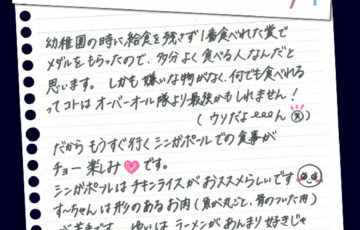 幼稚園の時に給食を残さず1番食べれた賞で
メダルをもらったので、多分よく食べる人なんだと
思います。しかも嫌いな物がなく、何でも食べれる
ってコトはオーバーオール隊より最強かもしれません!
(ウソだよeeeん 笑)
だからもうすぐ行くシンガポールでの食事が
チョー楽しみ♥です。
シンガポールはチキンライスがおススメらしいです
すーちゃんは形のあるお肉(魚が丸ごと、骨のついた肉)
が苦手です。ゆいはラーメンがあんまり好きじゃ